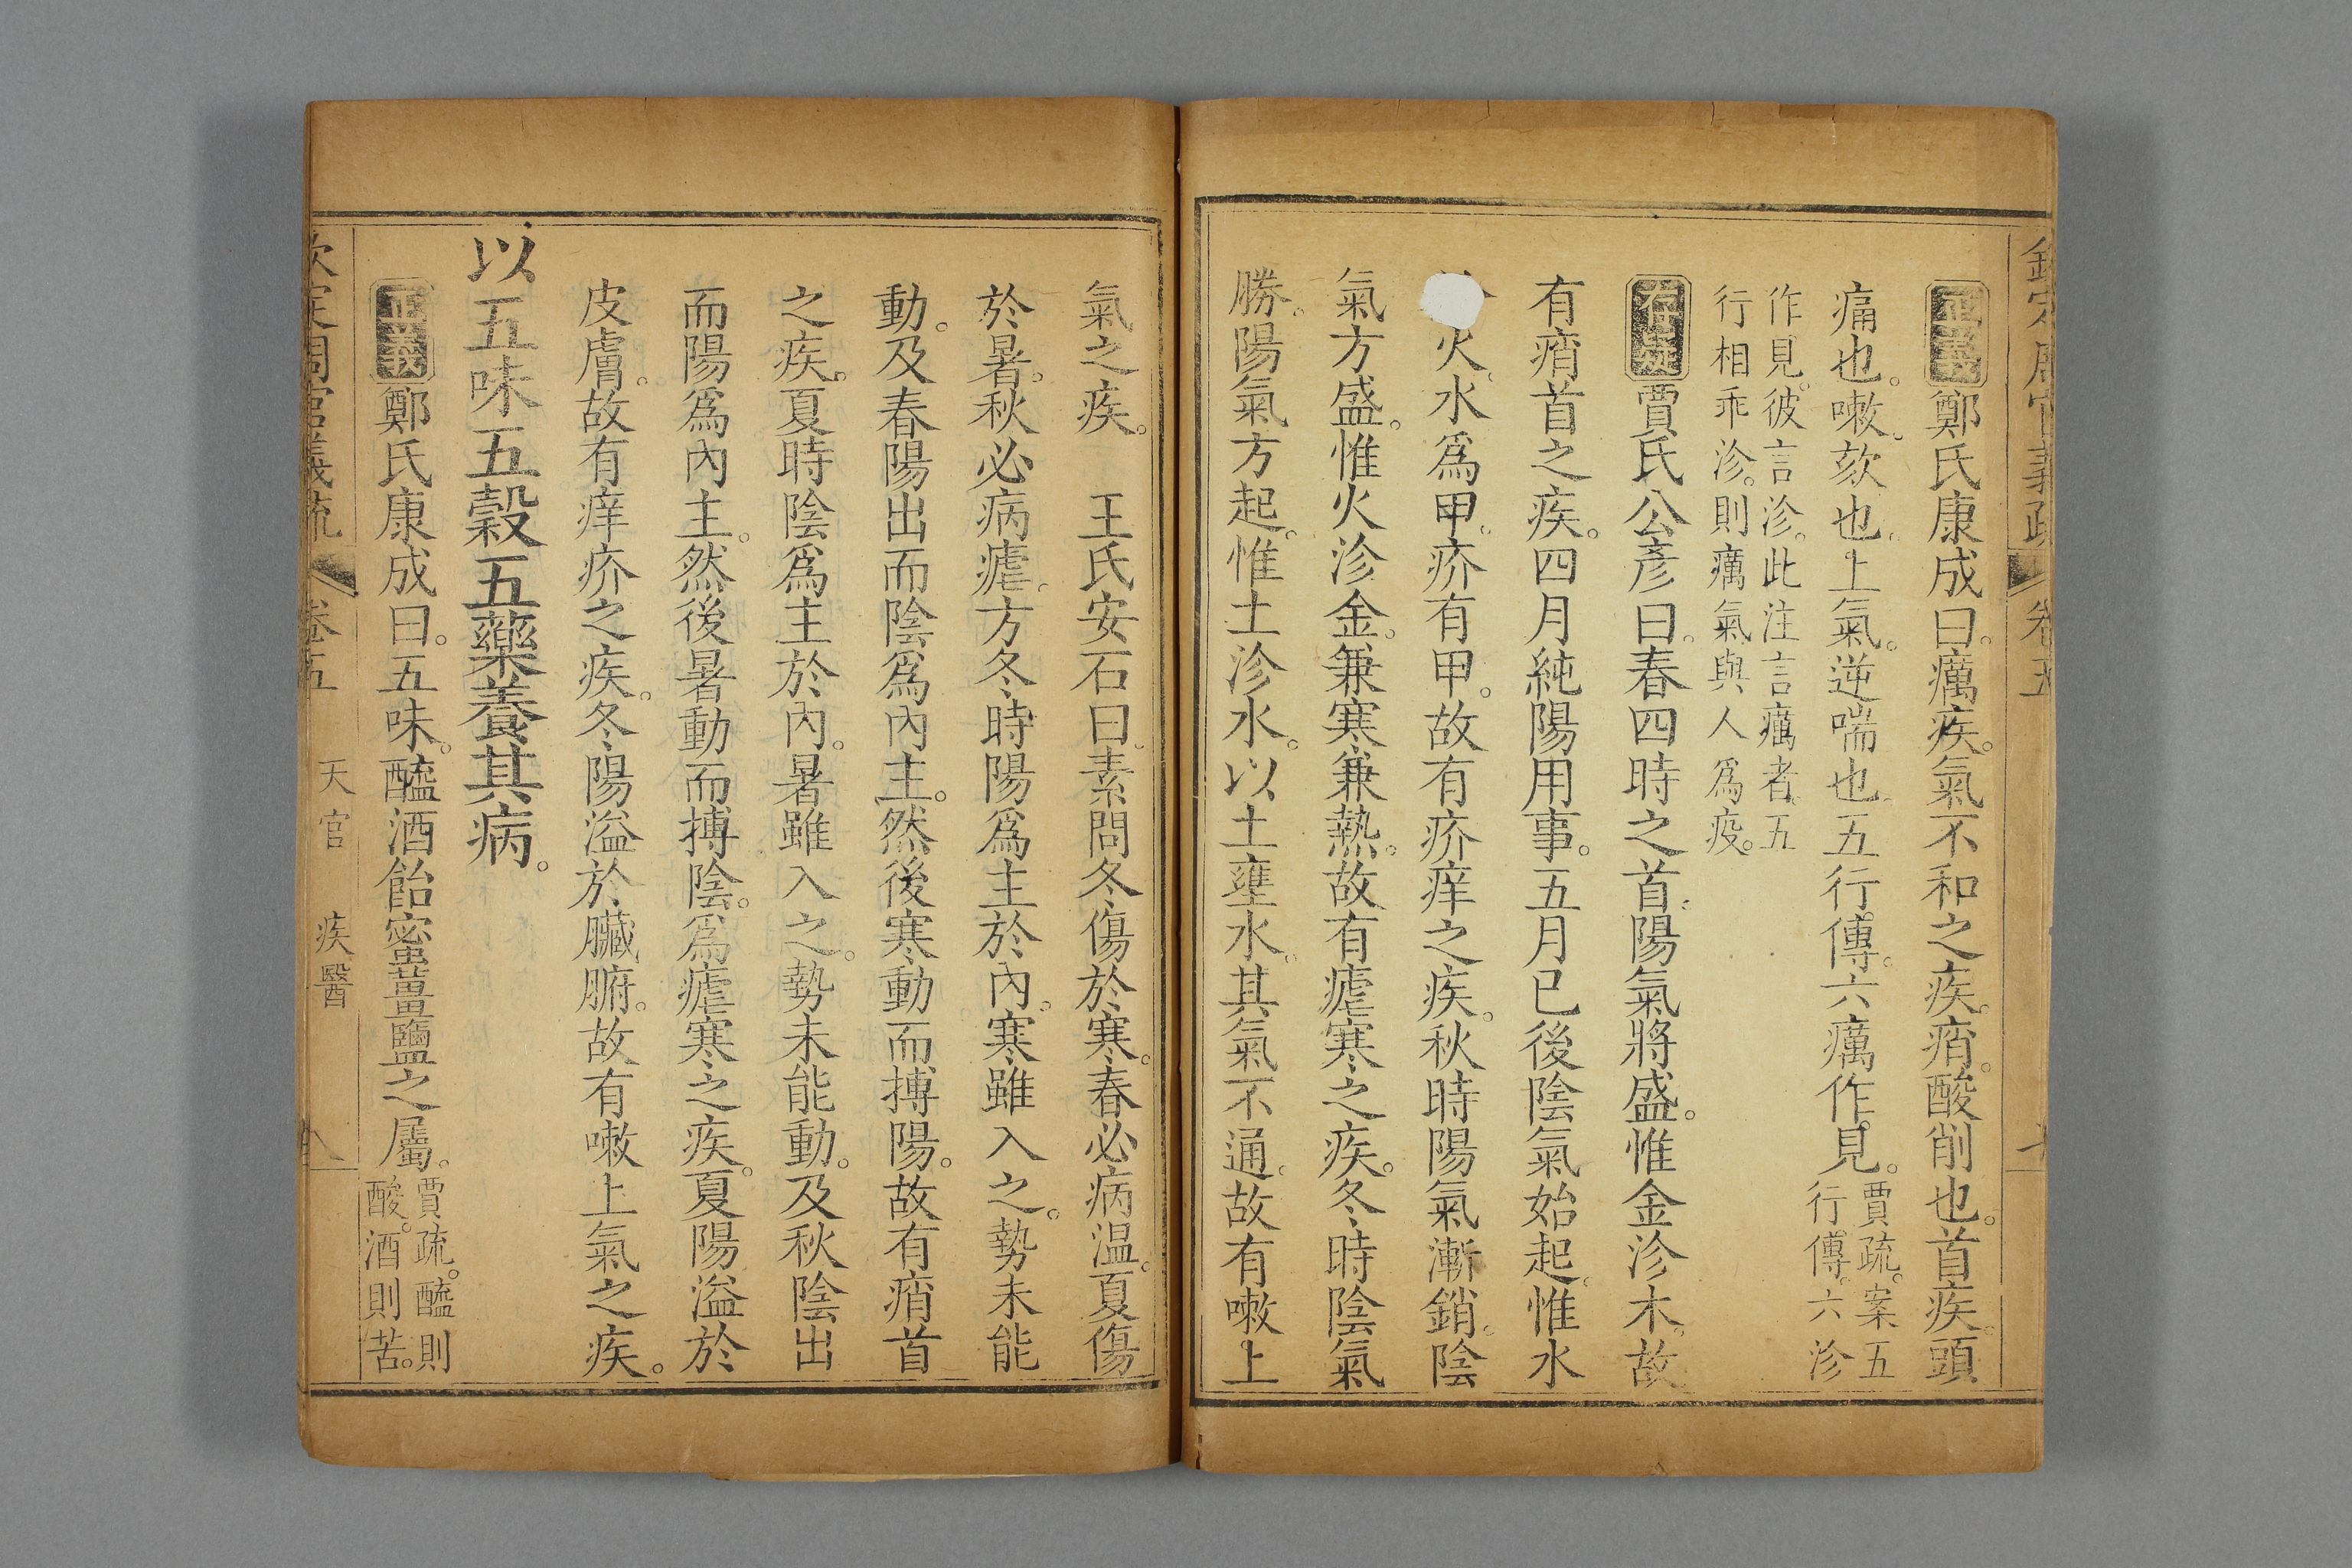 欽定周官義疏 卷五
正義鄭氏康成曰癘疾。氣不和之疾。痟。酸削也。首疾。頭
痛也。嗽。欬也。上氣。逆喘也。五行傳。六癘作。見。賈疏。案五
行傳。六沴
作見。彼言沴。此注言癘者。五
行相乖沴。則癘氣與人爲疫。
存疑賈氏公彥曰。春四時之首。陽氣將盛。惟金沴木。故
有痟首之疾。四月純陽用事。五月已後陰氣始起。惟水
火。水爲甲。疥有甲。故有疥痒之疾。秋時陽氣漸銷。陰
氣方盛。惟火沴金。兼寒兼熱。故有瘧寒之疾。冬時陰氣
勝。陽氣方起。惟土沴水。以土壅水。其氣不通。故有嗽上
氣之疾。 王氏安石曰。素問冬傷於寒。春必病温。夏傷
於暑。秋必病瘧。方冬時陽爲主於內。寒雖入之。勢未能
動。及春陽出而陰爲內主。然後寒動而搏陽。故有痟首
之疾。夏時陰爲主於內。暑雖入之。勢未能動。及秋陰出
而陽爲內主。然後暑動而搏陰。爲瘧寒之疾。夏陽溢於
皮膚。故有痒疥之疾。冬陽溢於臟腑。故有嗽上氣之疾。
以五味五穀五藥養其病。
正義鄭氏康成曰。五味。醯酒飴蜜薑鹽之屬。賈疏。醯則
酸。酒則苦。
欽定周官義疏 卷五 天官 疾醫 八